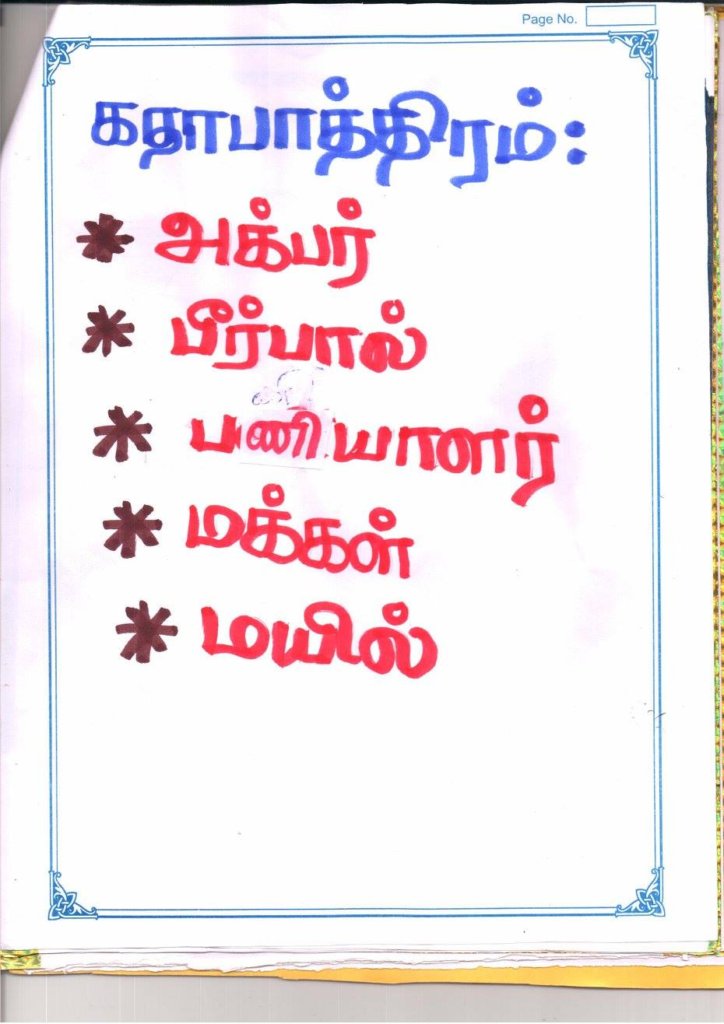 Page No.
கதாபாத்திரம்:
* அக்பர்
* பீர்பால்
* பணியாளர்
* மக்கள்
* மயில்